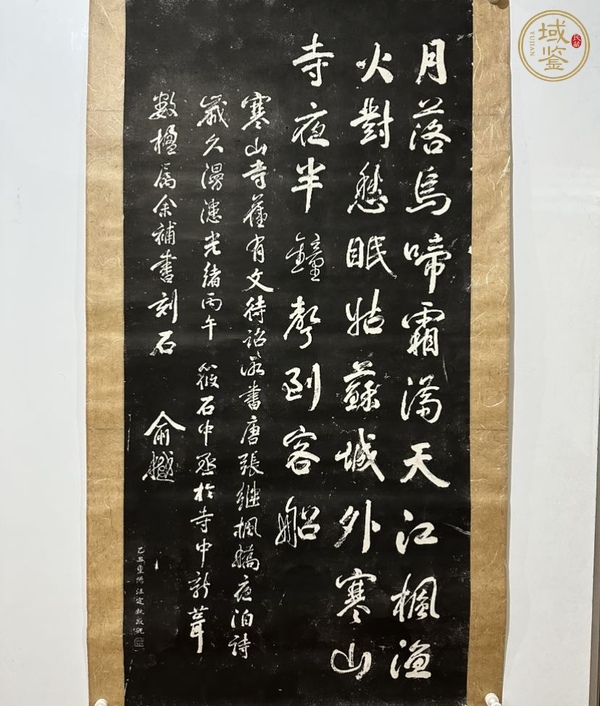 月落烏啼霜滿天江楓漁
火對愁眠姑蘇城外寒山
寺夜半鐘聲到客船
寒山寺舊有文待詔所書唐張繼楓橋夜泊詩
歲久漫漶光緒丙午筱石中丞於寺中新葺
數楹屬余補書刻石
俞樾
域鉴
YUJIAN